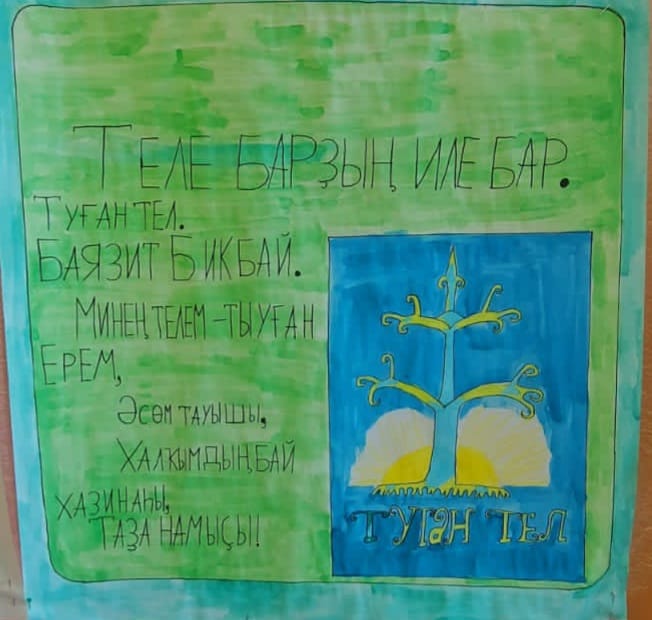 ТЕЛЕ БАРҘЫҢ ИЛЕ БАР.
ТУҒАН ТЕЛ.
БАЯЗИТ БИКБАЙ.
МИНЕҢ ТЕЛЕМ – ТЫУҒАН
ЕРЕМ,
ӘСӘМ ТАУЫШЫ,
ХАЛКЫМДЫҢ БАЙ
ХАЗИНАҺЫ,
ТАҘА НАМЫҪЫ!
ТУҒАН ТЕЛ